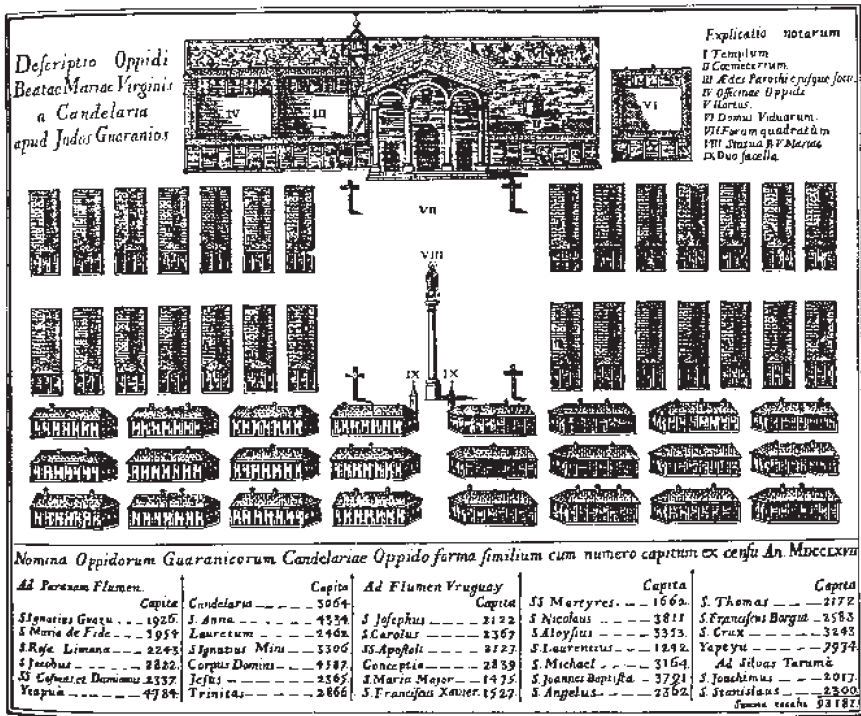 Descriptio Oppidi
Beatae Mariae Virginis
a Candelaria
apud Indos Guaranios
Explicatio notarum
I Templum
II Coemeterium
III Ædes Parochi ejusque socii
IV Officinae Oppidi
V Hortus.
VI Domus Viduarum.
VII Forum quadratum
VIII Statua B V Mariae
IX Duo sacella
IV
III
VI
VII
VIII
IX IX
Nomina Oppidorum Guaranicorum Candelariae Oppido forma similium cum numero capitum ex censu An. MDCCLXVII
Ad Paranam Flumen.
Capita
S Ignatius Guazu 1926
S Maria de Fide 3954
S. Rosa Limana 2243
S Jacobus 2822
SS Cosmas et Damianus 2337
Ytapua 4784
Capita
Candelaria 3064
S. Anna 4334
Lauretum 2462
S Ignatius Mini 3306
Corpus Domini 4587
Jesus 2365
Trinitas 2866
Ad Flumen Vruguay
Capita
S Josephus 2122
S. Carolus 2367
SS Apostoli 2127
Conceptio 2839
S. Maria Major 1475
S. Franciscus Xavier 1527
Capita
SS Martyres 1662
S Nicolaus 3811
S Aloysius 3353
S. Laurentius 1242
S. Michael 3164
S. Joannes Baptista 3791
S. Angelus 2362
Capita
S. Thomas 2172
S. Franciscus Borgia 2583
S. Crux 3243
Yapeyu 7974
Ad Silvas Tarumà
S. Joachimus 2017
S. Stanislaus 2300
Summa 93181